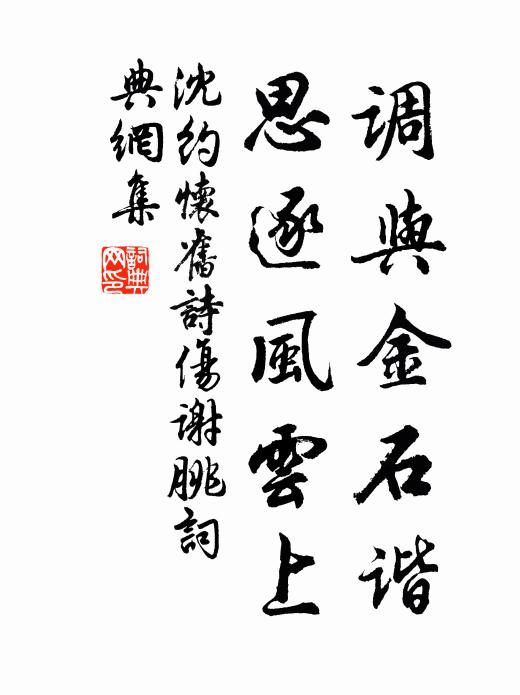 调與金石谐
思逐風雲上
沈约懷舊詩傷謝朓詞
典網集
詞典网印